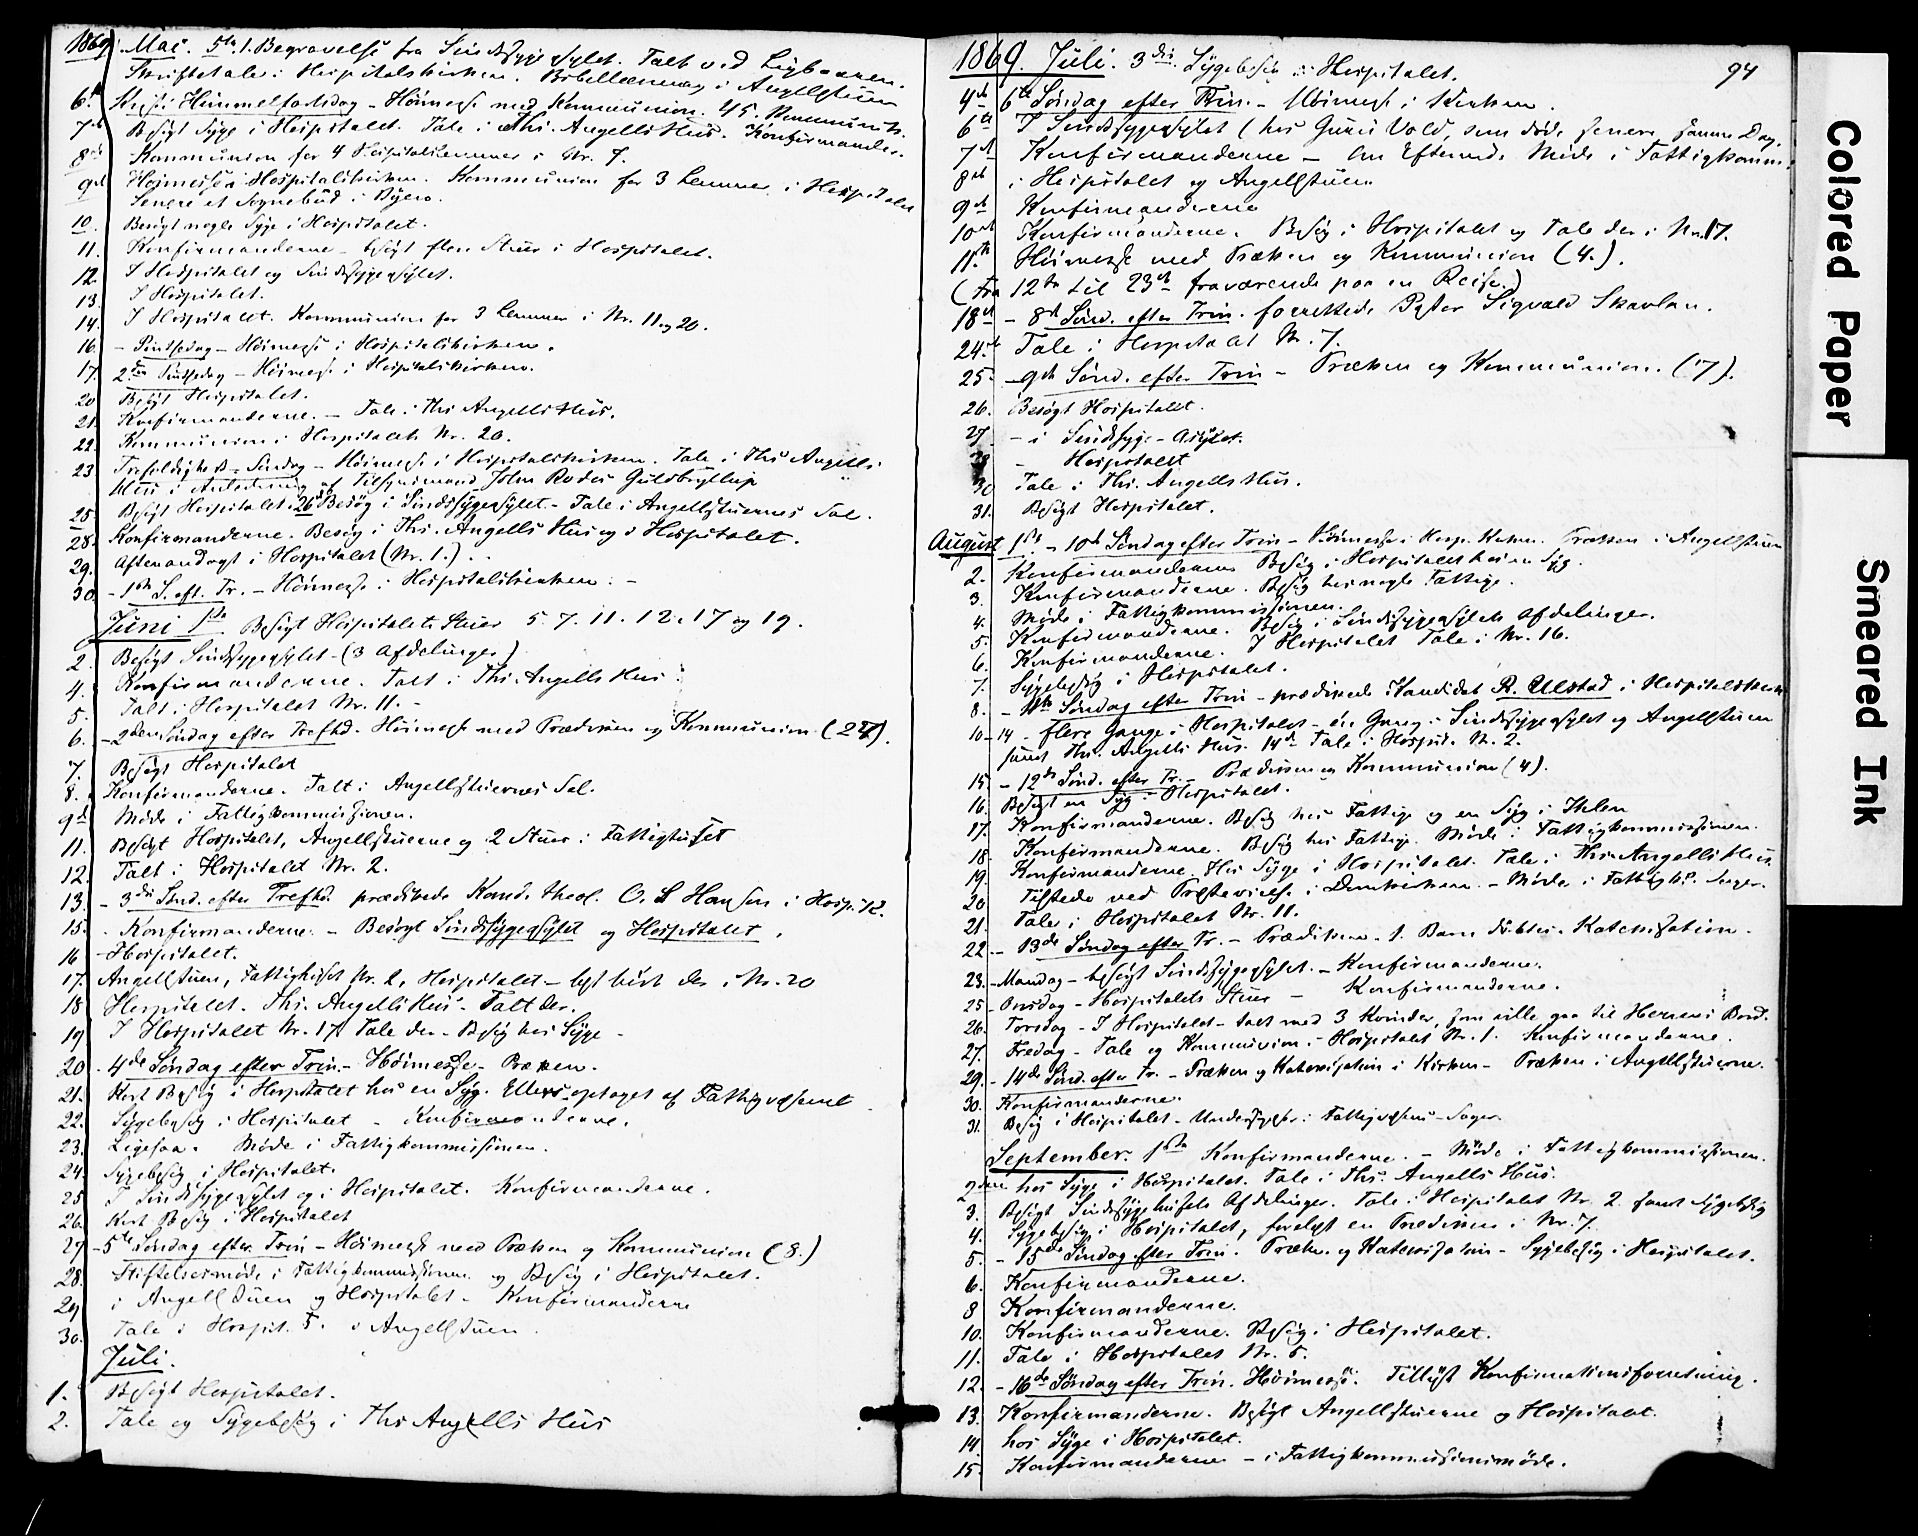 1869. Mai. 5te 1. Begravelse fra Sindssygeasylet. Talt ved Ligbaaren.
Skriftetale i Hospitalskirken. Bibellæsning i Angellstuen
6te Kristi Himmelfartsdag - Höimesse med Kommunion. 45. Kommunik.
7de Besögt Syge i Hospitalet. Tale i Ths. Angells Hus. Konfirmander.
8de Kommunion for 4 Hospitalslemmer i Nr. 7.
9de Höjmesse i Hospitalskirken. Kommunion for 3 Lemmer i Hospitalet
Senere et Sognebud i Byen.
10. Besögt nogle Syge i Hospitalet.
11. Konfirmanderne - besögt flere Stuer i Hospitalet.
12. I Hospitalet og Sindssygeasylet.
13. I Hospitalet.
14. I Hospitalet. Kommunion for 3 Lemmer i Nr. 11 og 20.
16. - Pintsedag - Höimesse i Hospitalskirken.
17. 2den Pintsedag - Höimesse i Hospitalskirken.
20 Besögt Hospitalet.
21. Konfirmanderne. - Tale i Ths Angells Hus.
22. Kommunion i Hospitalets Nr. 20.
23 Trefoldigheds-Söndag - Höimesse i Hospitalskirken. Tale i Ths Angells
Hus i Anledning af Tilsynsmand John Rodes Guldbryllup
25 Besögt Hospitalet. 26de Besög i Sindssygeasylet - Tale i Angellstuernes Sal.
28. Konfirmanderne. Besög i Ths. Angells Hus og i Hospitalet.
29. Aftenandagt i Hospitalet (Nr. 1.).
30. - 1ste S. eft. Tr. - Höimesse i Hospitalskirken. -
Juni 1ste Besögt Hospitalets Stuer 5. 7. 11. 12. 17 og 19.
2. Besögt Sindssygeasylet - (3 Afdelinger)
4. Konfirmanderne. Talt i Ths. Angells Hus.
5. Talt i Hospitalet Nr. 11. -
6. - 2den Söndag efter Trefhd. Höimesse med Prædiken og Kommunion (24).
7. Besögt Hospitalet
8. Konfirmanderne. Talt i Angellstuernes Sal.
9de Möde i Fattigkommissionen.
11. Besögt Hospitalet, Angellstuerne og 2 Stuer i Fattighuset
12. Talt i Hospitalet Nr. 2.
13. - 3die Sönd. efter Trefhd. prædikede Kand. theol. O. S Hansen i Hosp. K.
15. - Konfirmanderne. - Besögt Sindssygeasylet og Hospitalet.
16 - Hospitalet.
17. Angellstuen, Fattighuset Nr. 2, Hospitalet - der i Nr. 20
18 Hospitalet. Ths. Angells Hus. Talt der.
19 I Hospitalet Nr. 17. Tale der - Besög hos Syge -
20. - 4de Söndag efter Trin. - Höimesse - Præken.
21. Kort Besög i Hospitalet hos en Syg. Ellers optaget af Fattigvæsenet
22. Sygebesög i Hospitalet - Konfirmanderne.
23. Ligesaa. Möde i Fattigkommissionen.
24. Sygebesög i Hospitalet.
25 I Sindssygeasylet og i Hospitalet. Konfirmanderne.
26. Kort Besög i Hospitalet
27 - 5te Söndag efter Trin - Höimesse med Præken og Kommunion (8.)
28. Stiftelsesmöde i Fattigkommissionen og Besög i Hospitalet.
29 i Angellstuen og Hospitalet - Konfirmanderne
30. Tale i Hospit. 5. i Angellstuen.
Juli.
1. Besögt Hospitalet.
2. Tale og Sygebesög i Ths Angells Hus
1869. Juli. 3die Sygebesög i Hospitalet.
94
4de 6te Söndag efter Trin. - Höimesse i Kirken.
6te I Sindssygeasylet (hos Guru Vold, som döde senere samme Dag.
7de Konfirmanderne - om Efterm. Möde i Fattigkomm.
8de i Hospitalet og Angellstuen
9de Konfirmanderne
10de Konfirmanderne. Besög i Hospitalet og Tale der i Nr. 17.
11te Höimesse med Præken og Kommunion (4.).
(Fra 12te til 23de fraværende paa en Reise.)
18de - 8de Sönd. efter Trin. forrettede Pastor Sigvald Skavlan.
24de Tale i Hospitalet Nr. 7.
25 - 9de Sönd. efter Trin - Præken og Kommunion. (17).
26. Besögt Hospitalet.
27 - i Sindssyge-Asylet.
29 - Hospitalet
30 Tale i Ths. Angells Hus.
31. Besögt Hospitalet.
August 1ste - 10de Söndag efter Trin - Höimesse i Hosp. Kirken. Præken i Angellstuen
2. Konfirmanderne Besög i Hospitalet hos en Syg.
3. Konfirmanderne. Besög hos nogle Fattige.
4. Möde i Fattigkommissionen.
5. Konfirmanderne. Besög i Sindssygeasylets Afdelinger.
6. Konfirmanderne. I Hospitalet Tale i Nr. 16.
7. Sygebesög i Hospitalet.
8. - 11te Söndag efter Trin - prædikede Kandidat R. Ulstad i Hospitalskirken
10 - 14 - flere Gange i Hospitalet - én Gang i Sindssygeasylet og Angellstuen
samt Ths. Angells Hus. 14de Tale i Hospit. Nr. 2.
15 - 12te Sönd. efter Tr. - Prædiken og Kommunion (4).
16. Besögt en Syg i Hospitalet.
17. Konfirmanderne. Besög hos Fattige og en Syg i Ihlen
18. Konfirmanderne. Besög hos Fattige. Möde i Fattigkommissionen.
19. Konfirmanderne. Hos Syge i Hospitalet. Tale i Ths. Angells Hus.
20 Tilstede ved Præstevielse i Domkirken. - Möde i Fattigk. Sager.
21. Tale i Hospitalet Nr. 11.
22. - 13de Söndag efter Tr. - Prædiken. 1. Barn döbtes. Katekisation.
23. - Mandag - besögt Sindssygeasylet. - Konfirmanderne.
25 - Onsdag - Hospitalets Stuer - Konfirmanderne.
26. Torsdag - I Hospitalet - talt med 3 Kvinder, som ville gaa til Herrens Bord.
27. Fredag - Tale og Kommunion i Hospitalet Nr. 1. Konfirmanderne.
29. - 14de Sönd. efter Tr. - Præken og Katekisation i Kirken - Præken i Angellstuerne.
30. Konfirmanderne.
31. Besög i Hospitalet - Undersögelser i Fattigvæsens-Sager.
September. 1ste Konfirmanderne. - Möde i Fattigkommissionen.
2den hos Syge i Hospitalet. Tale i Ths. Angells Hus.
3. Besögt Sindssygehusets Afdelinger. Tale i Hospitalet Nr. 2 samt Sygebesög
4. Sygebesög i Hospitalet, forelæst en Prædiken i Nr. 7.
5. - 15de Söndag efter Trin. Præken og Katekisation - Sygebesög i Hospitalet.
6. Konfirmanderne.
8 Konfirmanderne.
10. Konfirmanderne. Besög i Hospitalet.
11. Tale i Hospitalet Nr. 5.
12. - 16de Söndag efter Trin. Höimesse. Tillyst Konfirmationsforretning.
13. Konfirmanderne. Besögt Angellstuerne og Hospitalet.
14 hos Syge i Hospitalet.
15. Konfirmanderne - i Fattigkommissionsmöde.
Colored Paper
Smeared Ink